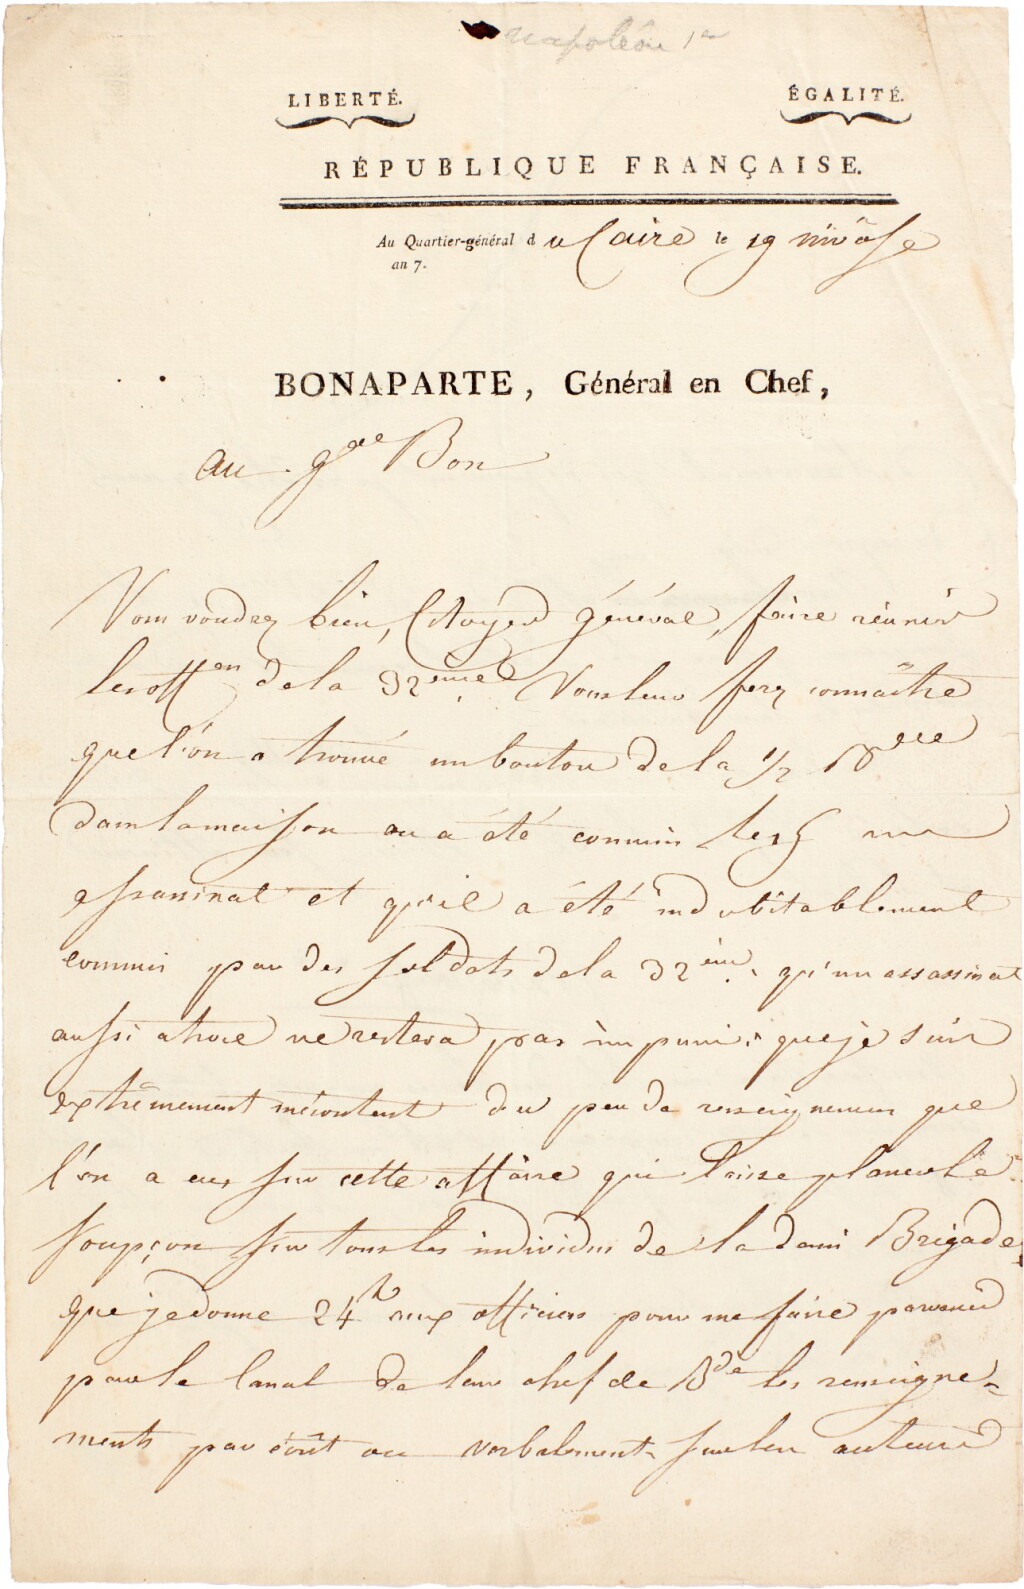 Napoléon 1er
LIBERTÉ. ÉGALITÉ.
RÉPUBLIQUE FRANÇAISE.
Au Quartier-général du Caire le 19 nivôse
an 7.
BONAPARTE, Général en Chef,
au gal Bon
Vous voudrez bien, Citoyen général, faire réunir
les offers de la 32ème. Vous leur ferez connaître
que l'on a trouvé un bouton de la 1/2 Bde
dans la maison ou a été commis un
assassinat et qu'il a été indubitablement
commis par des soldats de la 32ème. qu'un assassinat
aussi atroce ne restera pas impuni. que je suis
extrêmement mécontent du peu de renseignemens que
l'on a eus sur cette affaire qui laisse planer le
soupçon sur tous les individus de la demi Brigade,
que je donne 24h aux officiers pour me faire parvenir
par le Canal de leur chef de Bde les renseigne-
ments par écrit ou verbalement sur les auteurs